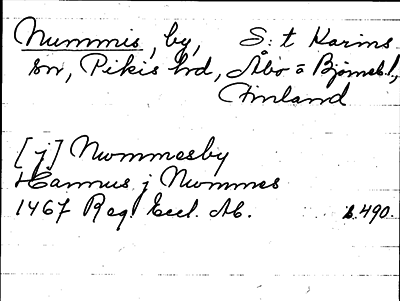 Nummis, by, S:t Karins
sn, Pikis hd, Åbo o Björneb.l,
Finland
[j] Nwmmesby
Hannus j Nwmmes
1467 Reg. Eccl. Ab. s.490.